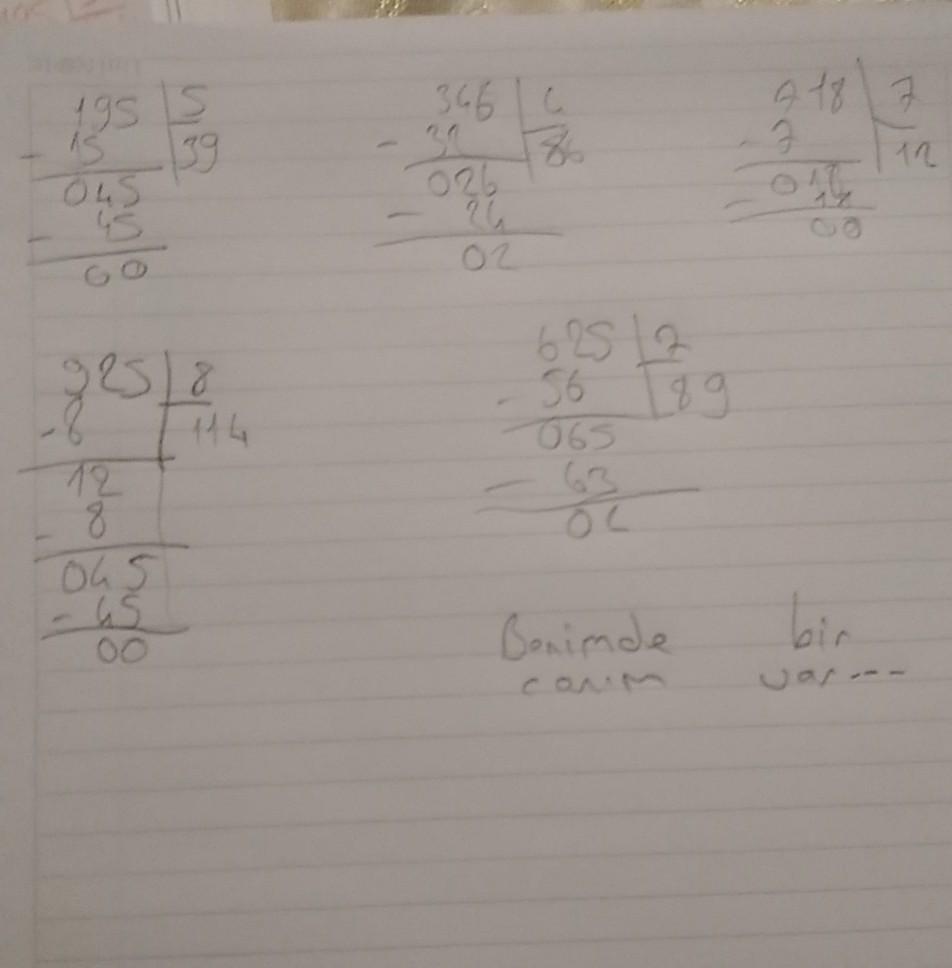 195 5
- 15 39
045
- 45
00
346 4
- 32 86
026
- 24
02
718 7
- 7 12
018
-
00
925 8
- 8 114
12
- 8
045
- 45
00
625 7
- 56 89
065
- 63
02
Benimde bir
canım var---